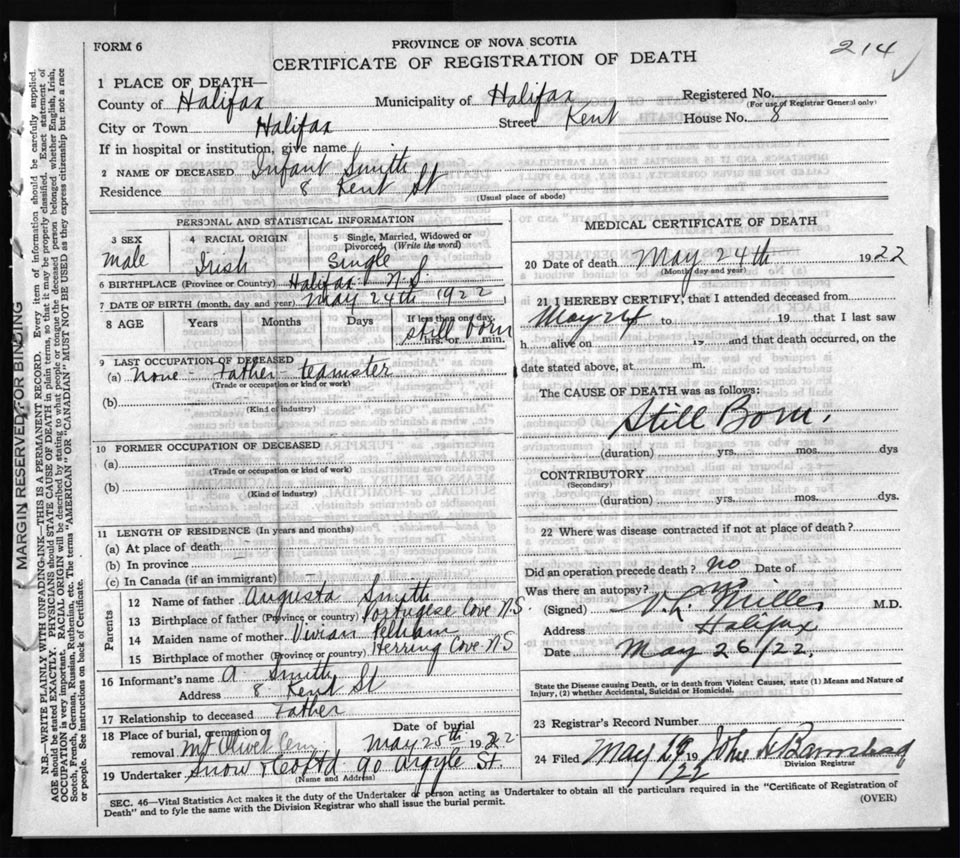 FORM 6
PROVINCE OF NOVA SCOTIA
214
CERTIFICATE OF REGISTRATION OF DEATH
1 PLACE OF DEATH—
County of Halifax Municipality of Halifax Registered No.
(For use of Registrar General only)
City or Town Halifax Street Kent House No. 8
If in hospital or institution, give name
2 NAME OF DECEASED Infant Smith
Residence 8 Kent St
(Usual place of abode)
PERSONAL AND STATISTICAL INFORMATION
3 SEX 4 RACIAL ORIGIN 5 Single, Married, Widowed or Divorced (Write the word)
male Irish Single
6 BIRTHPLACE (Province or Country) Halifax N.S.
7 DATE OF BIRTH (month, day and year) May 24th 1922
8 AGE Years Months Days If less than one day, hrs. or min.
Still born
9 LAST OCCUPATION OF DECEASED
(a) none - Father - teamster
(Trade or occupation or kind of work)
(b)
(Kind of industry)
10 FORMER OCCUPATION OF DECEASED
(a)
(Trade or occupation or kind of work)
(b)
(Kind of industry)
11 LENGTH OF RESIDENCE (In years and months)
(a) At place of death
(b) In province
(c) In Canada (if an immigrant)
Parents
12 Name of father Augusta Smith
13 Birthplace of father (Province or country) Portugese Cove NS
14 Maiden name of mother Vivian Pelham
15 Birthplace of mother (Province or country) Herring Cove NS
16 Informant's name A Smith
Address 8 Kent St
17 Relationship to deceased Father
18 Place of burial, cremation or removal Mt Olivet Cem Date of burial May 25th 1922
19 Undertaker Snow & Co Ltd 90 Argyle St
(Name and Address)
MEDICAL CERTIFICATE OF DEATH
20 Date of death May 24th 1922
(Month, day and year)
21 I HEREBY CERTIFY, that I attended deceased from
May 24 to 19 that I last saw
h alive on 19 and that death occurred, on the
date stated above, at m.
The CAUSE OF DEATH was as follows:
Still Born.
(duration) yrs. mos. dys
CONTRIBUTORY
(Secondary)
(duration) yrs. mos. dys.
22 Where was disease contracted if not at place of death?
Did an operation precede death? no Date of
Was there an autopsy? no
(Signed) Miller M.D.
Address Halifax
Date May 26/22.
State the Disease causing Death, or in death from Violent Causes, state (1) Means and Nature of
Injury, (2) whether Accidental, Suicidal or Homicidal.
23 Registrar's Record Number
24 Filed May 19 22 John
Division Registrar
SEC. 46—Vital Statistics Act makes it the duty of the Undertaker or person acting as Undertaker to obtain all the particulars required in the "Certificate of Registration of
Death" and to fyle the same with the Division Registrar who shall issue the burial permit.
(OVER)
MARGIN RESERVED FOR BINDING
N.B.—WRITE PLAINLY WITH UNFADING INK—THIS IS A PERMANENT RECORD. Every item of information should be carefully supplied.
AGE should be stated EXACTLY. PHYSICIANS should STATE CAUSE OF DEATH in plain terms, so that it may be properly classified. Exact statement of
OCCUPATION is very important. RACIAL ORIGIN will be described by stating to what people or tongue the deceased person belonged whether English, Irish,
Scotch, French, German, Russian, Ruthenian, etc. The terms "AMERICAN" OR "CANADIAN" MUST NOT BE USED as they express citizenship but not a race
or people. See instructions on back of Certificate.